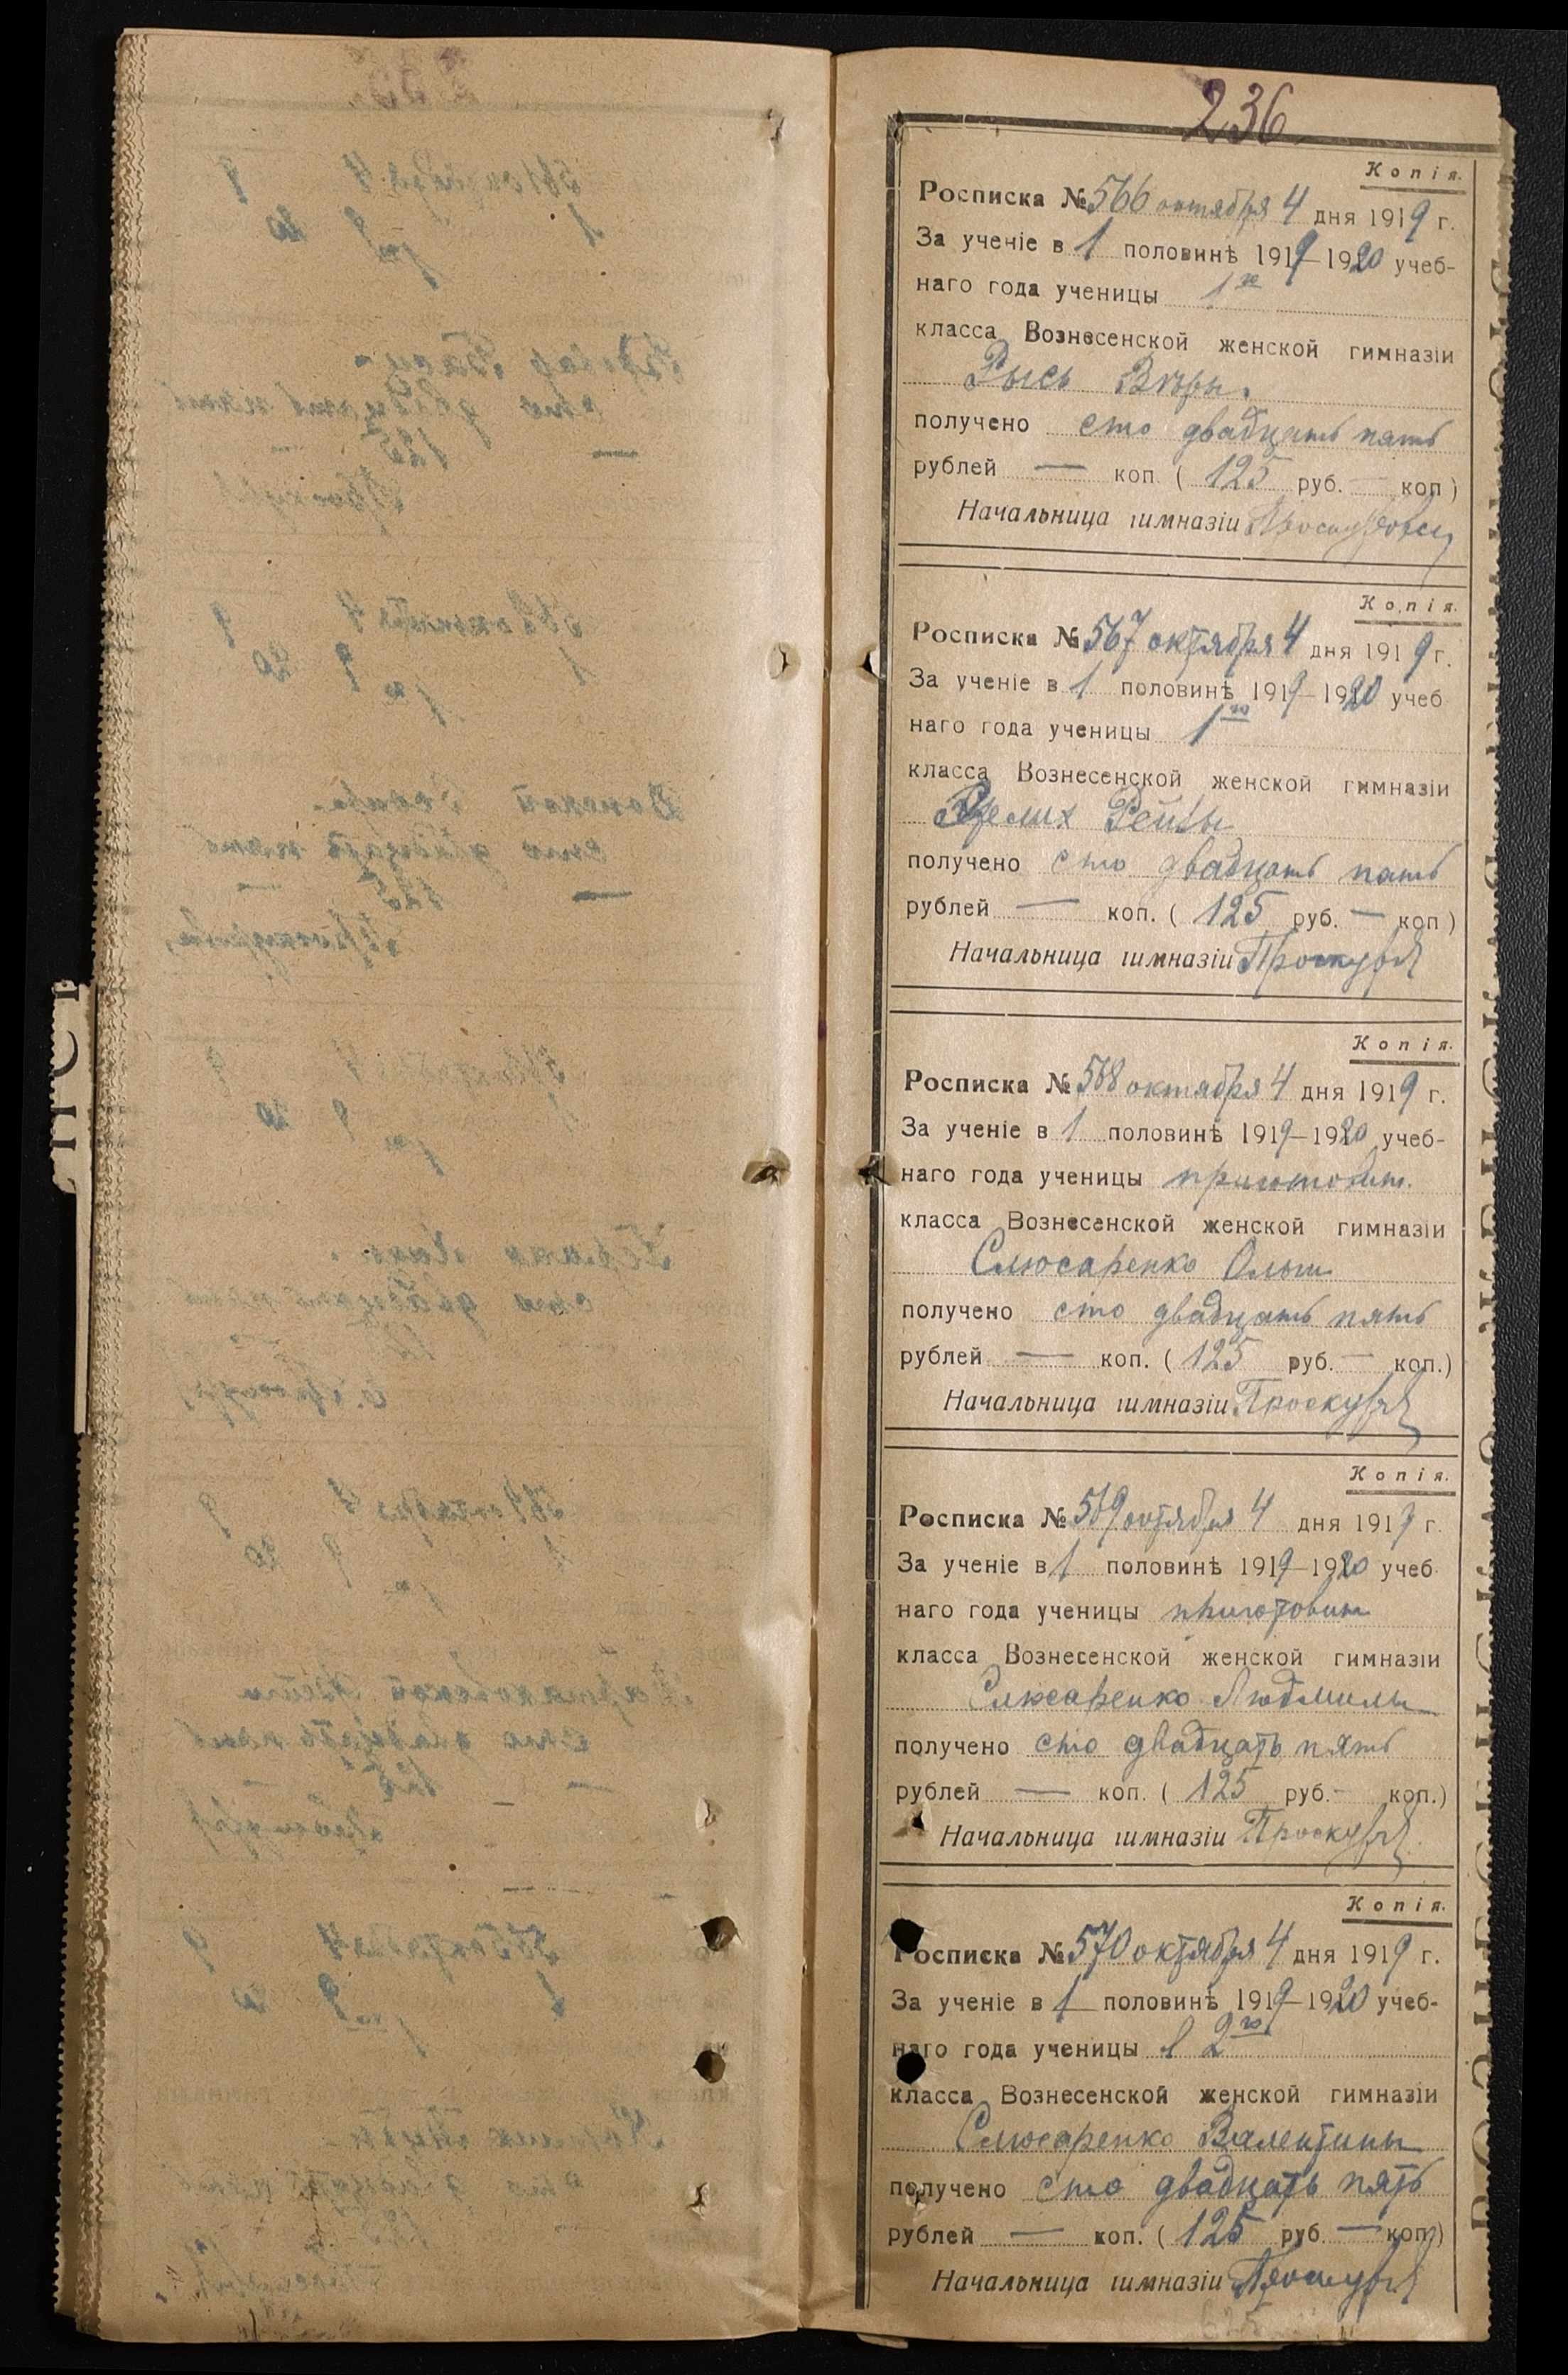 236
Копія.
Росписка № 566 октября 4 дня 1919 г.
За ученіе в 1 половинѣ 1919–1920 учеб-
наго года ученицы 1го
класса Вознесенской женской гимназіи
Рысь Вѣры.
получено сто двадцать пять
рублей — коп. ( 125 руб. — коп )
Начальница гимназіи
Копія.
Росписка № 567 октября 4 дня 1919 г.
За ученіе в 1 половинѣ 1919–1920 учеб
наго года ученицы 1го
класса Вознесенской женской гимназіи
Рейзы
получено сто двадцать пять
рублей — коп. ( 125 руб. — коп )
Начальница гимназіи
Копія.
Росписка № 568 октября 4 дня 1919 г.
За ученіе в 1 половинѣ 1919–1920 учеб-
наго года ученицы приготовит.
класса Вознесенской женской гимназіи
Слюсаренко Ольги
получено сто двадцать пять
рублей — коп. ( 125 руб. — коп.)
Начальница гимназіи
Копія.
Росписка № 569 октября 4 дня 1919 г.
За ученіе в 1 половинѣ 1919–1920 учеб
наго года ученицы приготовит
класса Вознесенской женской гимназіи
Слюсаренко Людмилы
получено сто двадцать пять
рублей — коп. ( 125 руб. — коп.)
Начальница гимназіи
Копія.
Росписка № 570 октября 4 дня 1919 г.
За ученіе в 1 половинѣ 1919–1920 учеб-
наго года ученицы 2го
класса Вознесенской женской гимназіи
Слюсаренко Валентины
получено сто двадцать пять
рублей — коп. ( 125 руб. — коп)
Начальница гимназіи